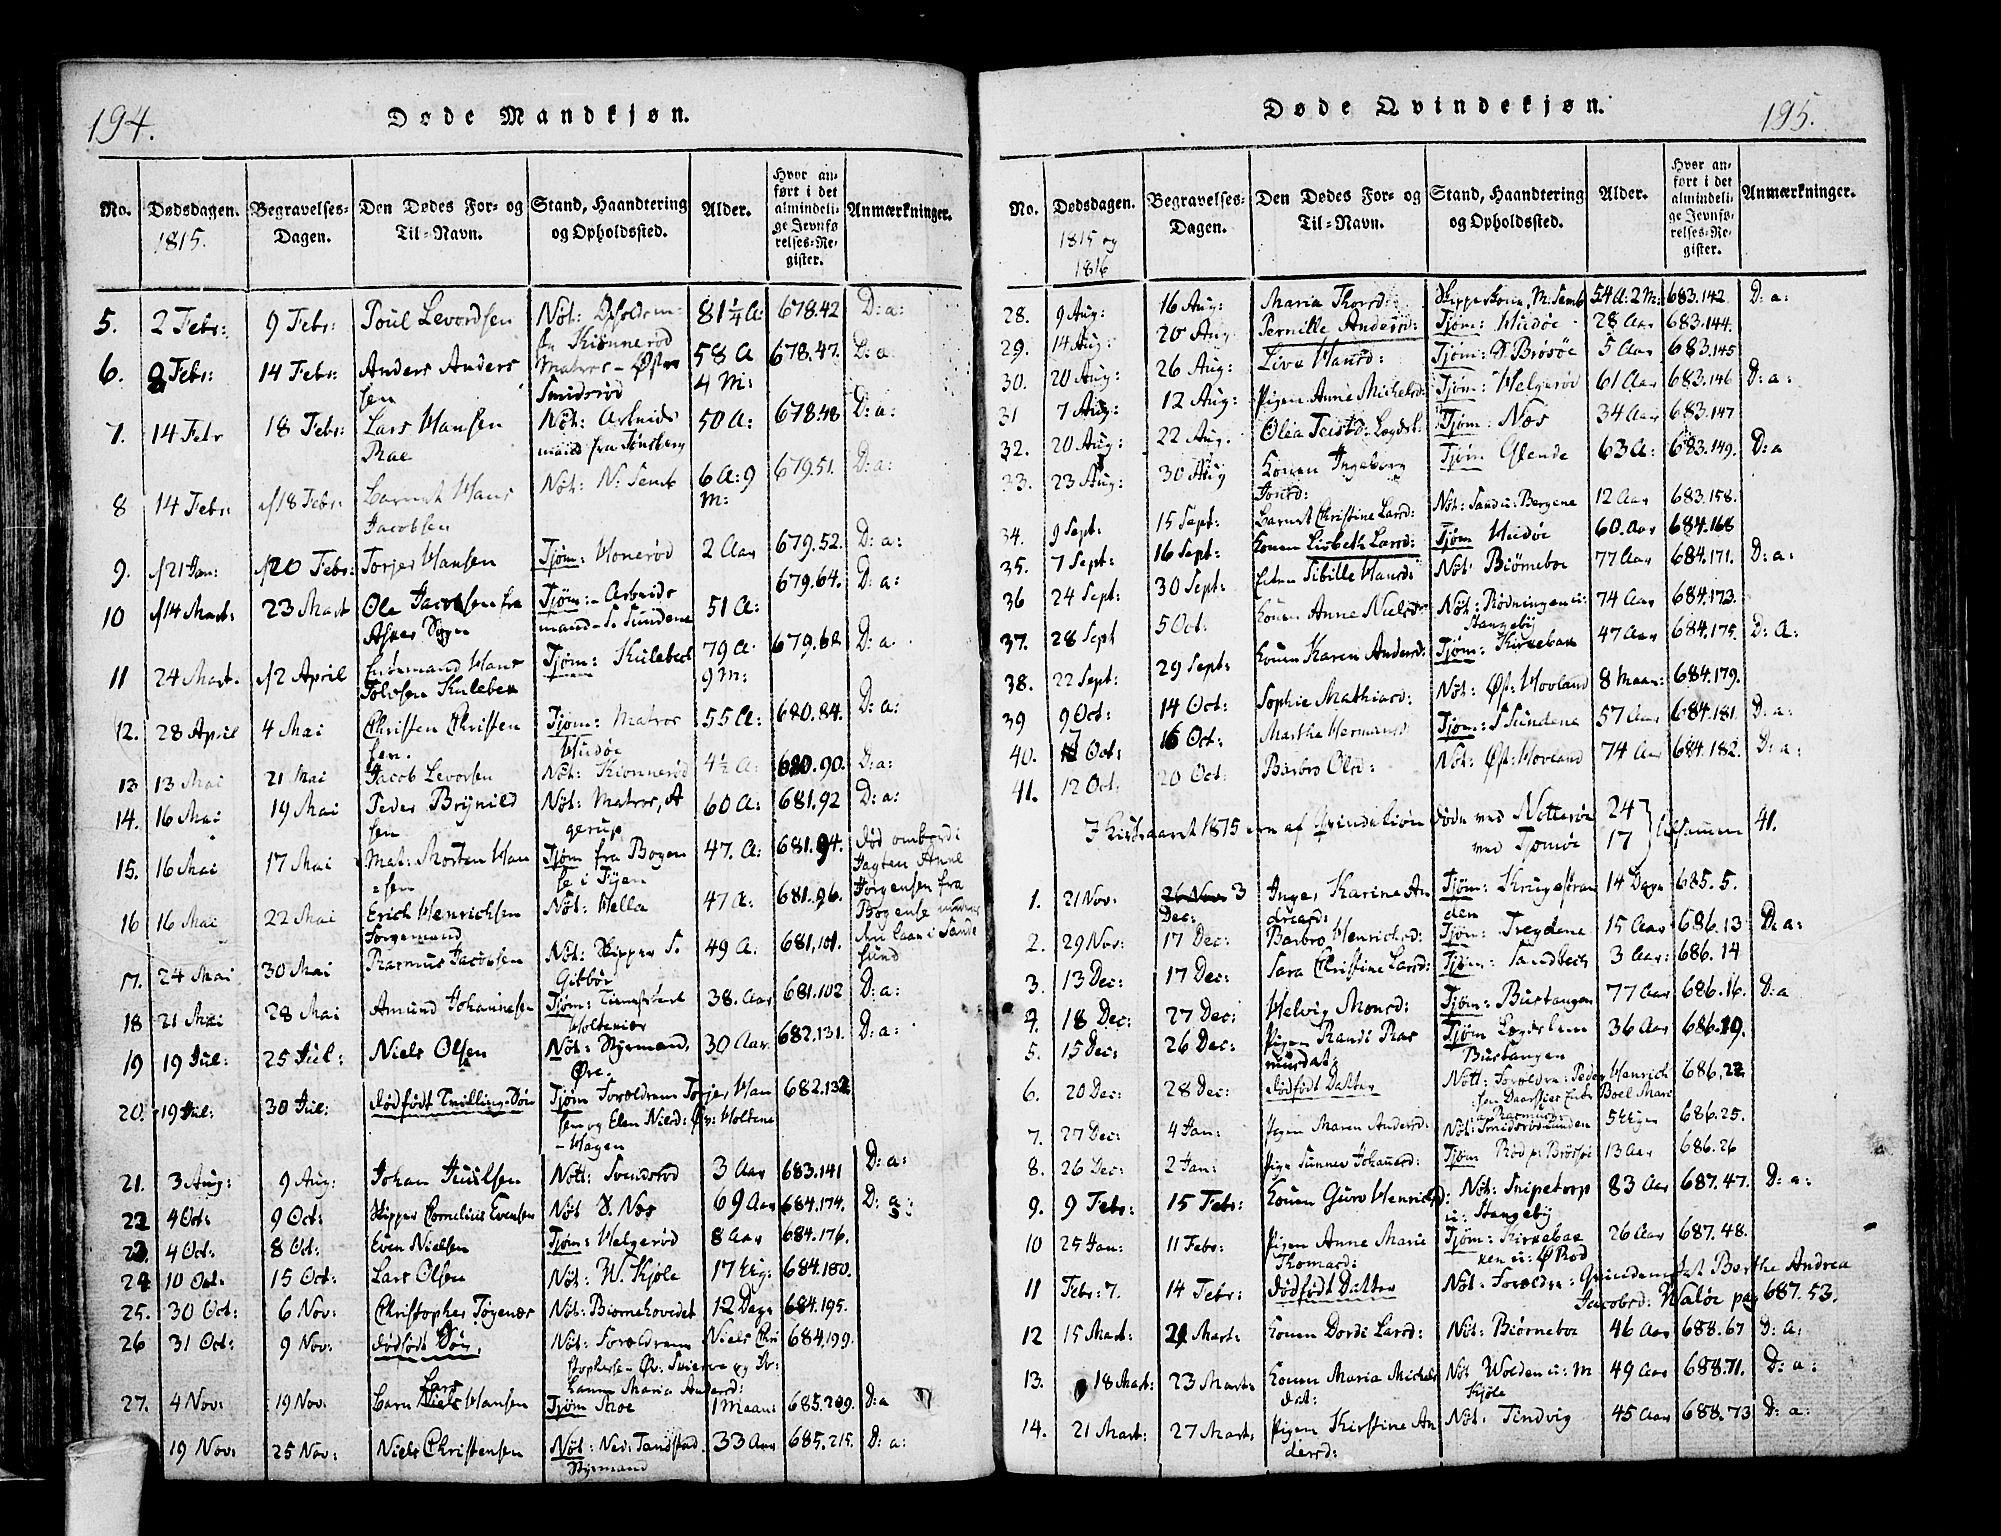 194.
Døde Mandkjøn.
No. Dødsdagen. Begravelses-Dagen. Den Dødes For- og Til-Navn. Stand, Haandtering og Opholdssted. Alder. Hvor anført i det almindelige Jevnførelses-Register. Anmærkninger.
1815.
5. 2 Febr: 9 Febr: Poul Levordsen Nöt: 81¼ A: 678.42 D: a:
Kionnerød
6. 8 Febr: 14 Febr: Anders Anders Matros - Østre 58 A 678.47. D: a.
sen Smidsrød 4 M:
7. 14 Febr 18 Febr: Lars Hansen Nöt: Arbeids 50 A: 678.48 D: a:
mand fra Tønsberg
8 14 Febr: 18 Febr: Barnet Hans Nöt: N: Semb 6 A: 9 679.51. D: a:
Jacobsen M:
9. 21 Jan: 20 Febr: Torjer Hansen Tjøm: Honerød 2 Aar 679.52. D: a:
10 14 Mart: 23 Mart Ole Jacobsen fra Tjøm: - Arbeids 51 A: 679.64. D: a:
Asker Sogn mand - S. Sundene
11 24 Mart. 2 April Hans Tjøm: Kulebek 79 A: D: a:
Kulebek 9 M:
12. 28 April 4 Mai Christen Christen Tjøm: Matros 55 A: 680.84. D: a:
sen. Hudøe
13 13 Mai 21 Mai Jacob Levorsen Nöt: Kionnerød 4½ A: 680.90. D: a:
14. 16 Mai 19 Mai Peder Brynild Nöt: Matros, A 60 A: 681.92 D: a:
sen gerup
15. 16 Mai 17 Mai Mat: Morten Han Tjøm fra Bogen 47. A: 681.94. død ombord i
sen se i Fyen Jagten Anne
16 16 Mai 22 Mai Erich Henrichsen Nöt: Hella 47 A: 681.96. Jørgensen fra
Bogense
17. 24 Mai 30 Mai Rasmus Jacobsen Nöt: Skipper S. 49 A: 681,101. i Sande
Gibbøe sund
18 21 Mai 28 Mai Amund Johannesen Tjøm: 38. Aar 681.102 D: a:
19 19 Jul: 25 Jul: Niels Olsen Nöt: Styrmand, 30 Aar. 682.131. D: a:
Øre.
20. 19 Jul: 30 Jul: dødfødt Tvilling-Søn Tjøm Forældrene Torjer Han 682.132
sen og Elen Nielsd: Holtene
21. 3 Aug: 9 Aug: Johan Juulsen Nött: Svendsrød 3 Aar 683.141 D: a:
22 4 Oct: 9 Oct: Skipper Cornelius Evensen Nöt Næs 69 Aar 684.174. D: a:
23. 4 Oct: 8 Oct: Even Nielsen Tjøm: Helgerød 8 Aar 684.176.
24 10 Oct: 15 Oct: Lars Olsen Nöt: W. Kjöle 17 Uig: 684.180.
25. 30 Oct: 6 Nov: Christopher Nöt: Biornehovedet 12 Dage 684.195.
26 31 Oct: 9 Nov: dødfødt Søn, Nöt: Forældrene Niels Chri 684.199.
stophersen og
Maria Andersd:
27. 4 Nov: 19 Nov: Barn Lars Hansen Tjøm Moe 1 Maan: 685.209. D: a
19 Nov: 25 Nov: Niels Christensen Nöt: Ned: Tandstad 33 Aar 685.215. D: a:
Styrmand
195.
Døde Qvindekjøn.
No. Dødsdagen. Begravelses-Dagen. Den Dødes For- og Til-Navn. Stand, Haandtering og Opholdssted. Alder. Hvor anført i det almindelige Jevnførelses-Register. Anmærkninger.
1815 og
1816
28. 9 Aug: 16 Aug: Maria Thorsd: Skipperkone, M: Semb 54 A: 2 M: 683.142. D: a:
29. 14 Aug: 20 Aug Pernille Andersd: Tjøm: Hudøe 28 Aar 683.144.
30. 20 Aug: 26 Aug: Liva Hansd: Tjøm: Brøsøe 5 Aar 683.145
31 7 Aug: 12 Aug: Pigen Anne Michelsd: Tjøm: Helgerød 61 Aar 683.146 D: a:
32. 20 Aug: 22 Aug. Olea Teistd: Logdsl. Tjøm: Næs 34 Aar 683.147
33. 23 Aug: 30 Aug Konen Ingeborg Tjøm 63 A: 683.149. D: a
34. 9 Sept: 15 Sept: Barnet Christine Larsd: Nöt: Sand u: Bergene 12 Aar 683.158.
35. 7 Sept: 16 Sept: Konen Lisbeth Larsd: Tjøm Hudøe 60. Aar 684.168
36 24 Sept 30 Sept: Enken Sibille Hansd: Nöt: Biørneboe 77 Aar 684.171. D: a:
37. 28 Sept 5 Oct: Konen Anne Nielsd: Nöt: Rødningen u: 74 Aar 684.173.
Stangebÿ
38. 22 Sept: 29 Sept: Konen Karen Andersd: Tjøm: Kirkebak 47 Aar 684.175. D: A:
39 9 Oct: 14 Oct: Sophie Mathiasd: Nöt: Øst: Hovland 8 Maan: 684.179.
40. 7 Oct: 16 Oct: Marthe Hermansd Tjøm: S Sundene 57 Aar 684.181. D: a:
41. 12 Oct: 20 Oct: Barbro Olsd: Nöt: Øst: Hovland 74 Aar 684.182. D: a:
I Kirkeaaret 1815 ere af Qvindekiøn døde ved Nötterøe 24
ved Tjømöe 17 } tilsammen 41.
1. 21 Nov: 26 Nov 3 Inger Karine An Tjøm: Krugestran 14 Dage 685.5.
Dec: dreasd: den
2. 29 Nov: 17 Dec: Barbro Henrichsd: Tjøm: Tregdene 15 Aar 686.13 D: a:
3. 13 Dec: 17 Dec: Sara Christine Larsd: Tjøm: Sandbech 3 Aar: 686.14
4. 18 Dec: 27 Dec: Helvig Monsd: Tjøm: Bustangen 77 Aar 686.16. D: a
5. 15 Dec: 26 Dec: Pigen Randi Ras Tjøm Logdslem 36 Aar 686.19.
musdat: Bustangen
6. 20 Dec: 28 Dec: dødfødt Datter Nött: Forældre: Peder Henrich 686.22
sen Boel Mari
7. 27 Dec: 4 Jan: Pigen Maren Andersd: Nöt: Smidsrødsunden 5 Uger 686.25.
8. 26 Dec: 2 Jan: Pige Sunnev Johansd: Tjøm Rød p: Brösöe 13 Aar 686.26
9. 9 Febr: 15 Febr: Konen Guro Henrichsd: Nöt: Snipetorp 83 Aar 687.47. D: a:
u: Stangebÿ
10 25 Jan: 11 Febr: Pigen Anne Marie Tjøm: Kirkebak 26 Aar 687.48.
Thomasd: ken u: Ø Rød
11 Febr: 7. 14 Febr: dødfødt Datter Nöt: Forældre: Qvindemsk Berthe Andrea
Jacobsd: Waløe pag 687.53.
12 15 Mart: 21 Mart: Konen Dordi Larsd: Nöt: Biørneboe 46 Aar 688.67 D: A:
13. 18 Mart: 23 Mart: Konen Maria Michels Nöt Wolden u: M 49 Aar 688.71. D: a:
dat: Kjöle
14. 21 Mart: 27 Mart: Pigen Kirstine An Nöt: Tindvig 45 Aar 688.73 D: a:
dersd: